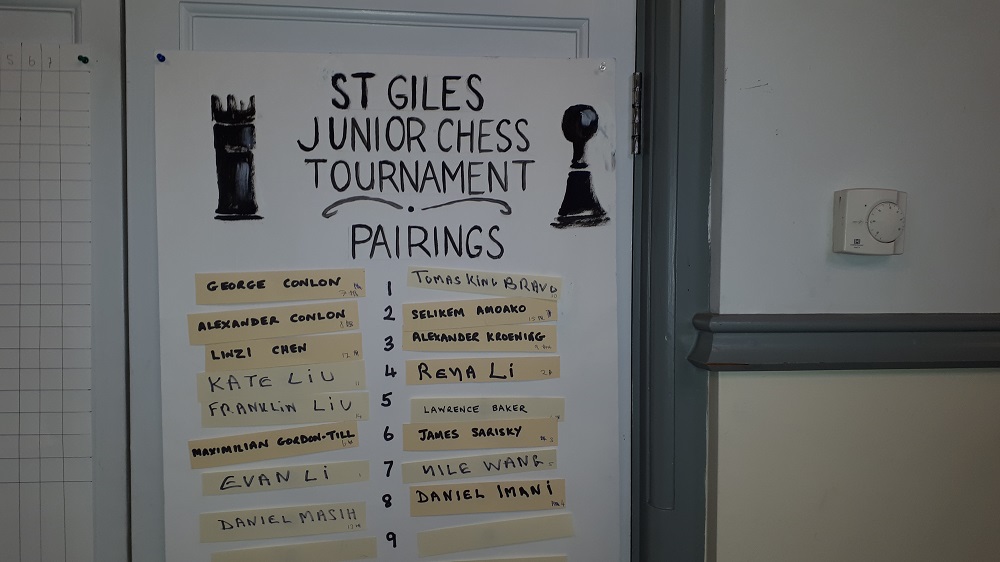 5 6 7
ST GILES
JUNIOR CHESS
TOURNAMENT
PAIRINGS
GEORGE CONLON 1 TOMAS KING BRAVO
ALEXANDER CONLON 2 SELIKEM AMOAKO
LINZI CHEN 3 ALEXANDER KROENING
KATE LIU 4 REYA LI
FRANKLIN LIU 5 LAWRENCE BAKER
MAXIMILIAN GORDON-TILL 6 JAMES SARISKY
EVAN LI 7 NILE WANG
DANIEL MASIH 8 DANIEL IMANI
9